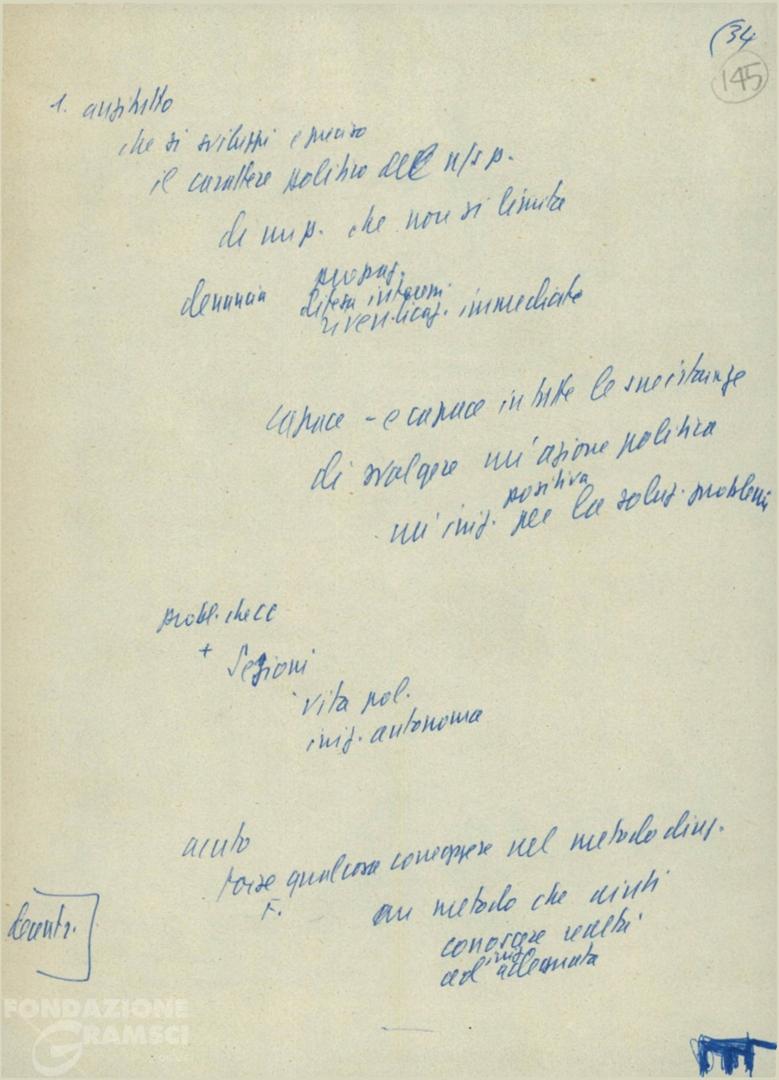 (34
145
1. anzitutto
che si sviluppi e precisi
il carattere politico del n/s p.
di un p. che non si limita
propag.
denuncia difesa interessi
rivendicaz. immediate
capace - e capace in tutte le sue istanze
di svolgere un'azione politica
positiva
un'iniz. per la soluz. problemi
probl. che cc
+ Sezioni
vita pol.
iniz. autonoma
aiuto
forse qualcosa correggere nel metodo direz.
F. un metodo che aiuti
decentr.
conoscere realtà
iniz.
ed adeguata
FONDAZIONE
GRAMSCI